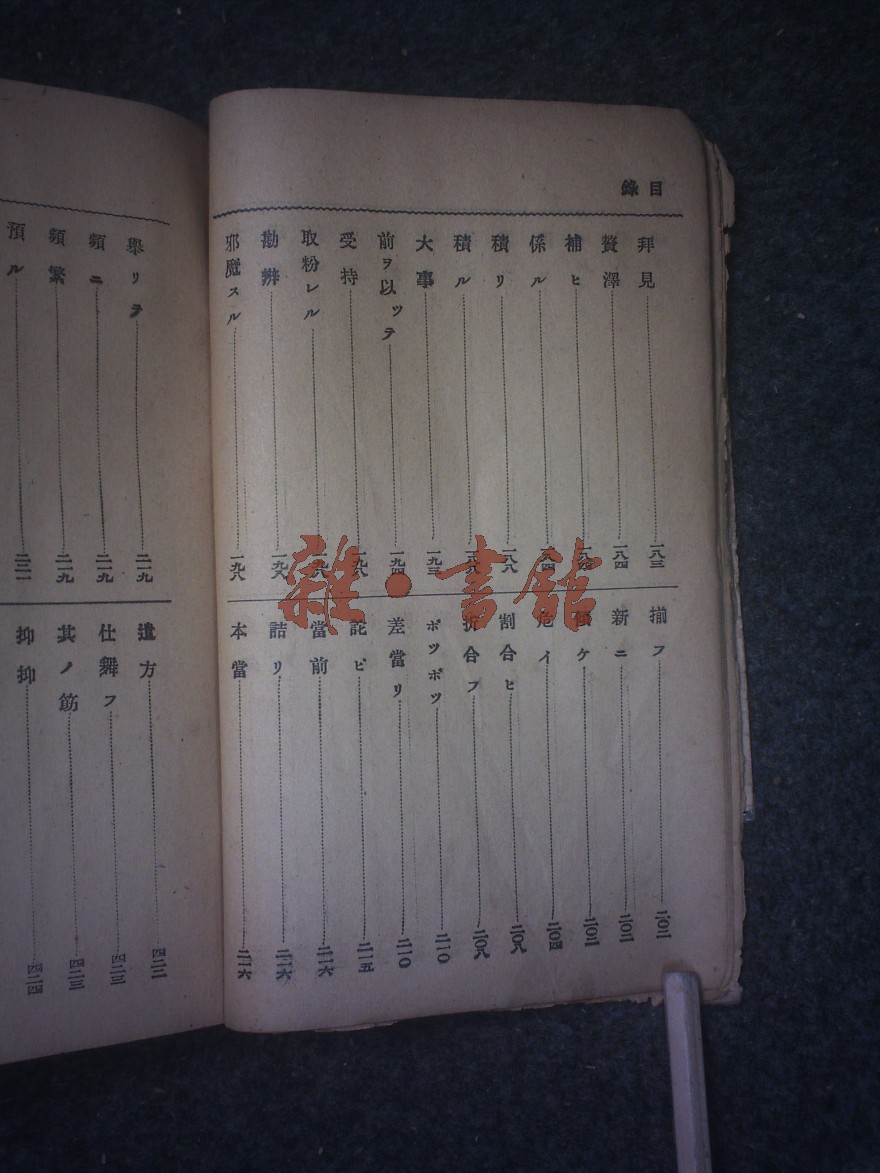 目錄
拜見 一八三
贅澤 一八四
補ヒ
係ル
積リ 一八八
積ル
大事 一九三
前ヲ以ツテ 一九四
受持 一九六
取粉レル
勘辨 一九八
邪魔スル 一九八
揃フ 二〇二
新ニ 二〇二
ケ 二〇二
危イ 二〇四
割合ヒ 二〇八
折合フ 二〇八
ボツボツ 二一〇
差當リ 二一〇
詫ビ 二一五
當前 二一六
詰リ 二一六
本當 二一六
舉リテ 二一九
頻ニ 二一九
頻繁 二一九
預ル
遣方
仕舞フ
其ノ筋
抑抑
雜·書館